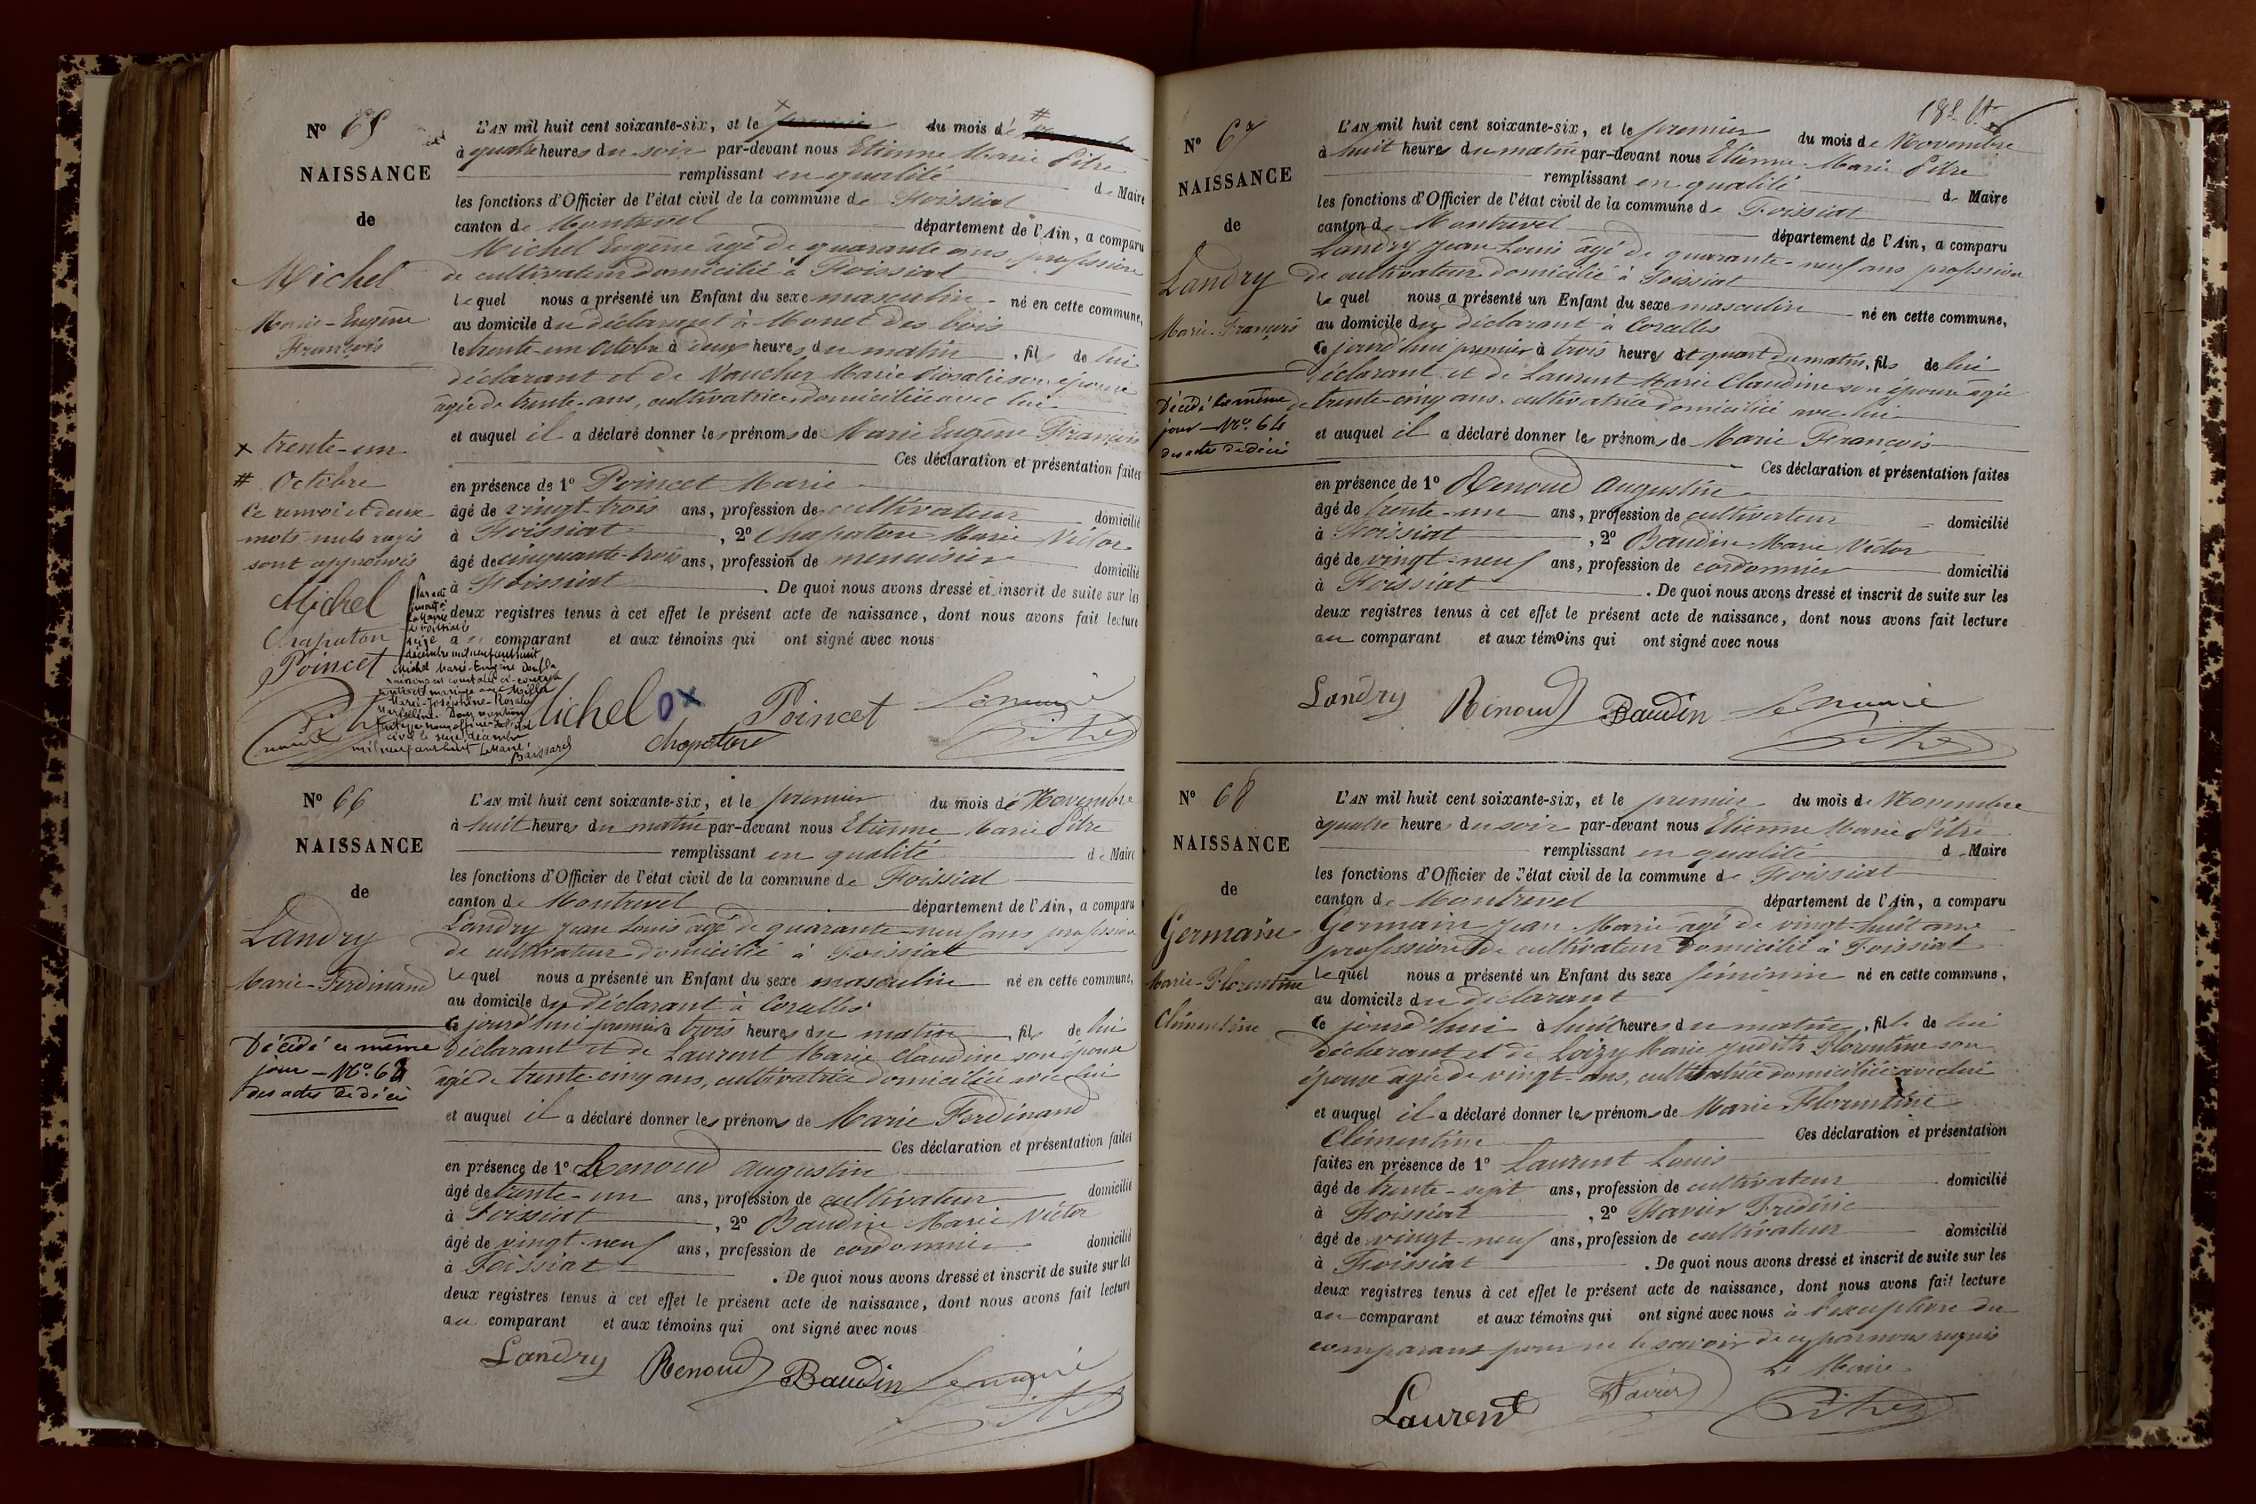 N° 65
NAISSANCE
de
Michel
Marie-Eugène
François
x trente-un
# Octobre
Ce renvoi et deux
mots nuls rayés
sont approuvés
Michel
Chapaton
Poincet
décembre mil neuf cent huit
Michel Marie-Eugène
Marie-Joséphine-Rosalie
civil le seize décembre
mil neuf cent huit Le Maire,
L'AN mil huit cent soixante-six, et le x premier du mois de #
à quatre heures du soir par-devant nous Etienne Marie Pitre
remplissant en qualité de Maire
les fonctions d'Officier de l'état civil de la commune de Foissiat
canton de Montrevel département de l'Ain, a comparu
Michel Eugène âgé de quarante ans, profession
de cultivateur domicilié à Foissiat
lequel nous a présenté un Enfant du sexe masculin né en cette commune,
au domicile du déclarant à Monet des bois
le trente-un Octobre à deux heures du matin, fils de lui
déclarant et de Vaucher Marie Rosalie son épouse
âgée de trente ans, cultivatrice domiciliée avec lui
et auquel il a déclaré donner les prénoms de Marie Eugène François
Ces déclaration et présentation faites
en présence de 1° Poincet Marie
âgé de vingt-trois ans, profession de cultivateur domicilié
à Foissiat, 2° Chapaton Marie Victor
âgé de cinquante-trois ans, profession de menuisier domicilié
à Foissiat. De quoi nous avons dressé et inscrit de suite sur les
deux registres tenus à cet effet le présent acte de naissance, dont nous avons fait lecture
au comparant et aux témoins qui ont signé avec nous
Michel OX Poincet Le maire
Chapaton Pitre
N° 66
NAISSANCE
de
Landry
Marie-Ferdinand
Décédé ce même
jour – N° 63
des actes de décès
L'AN mil huit cent soixante-six, et le premier du mois de Novembre
à huit heures du matin par-devant nous Etienne Marie Pitre
remplissant en qualité de Maire
les fonctions d'Officier de l'état civil de la commune de Foissiat
canton de Montrevel département de l'Ain, a comparu
Landry Jean Louis âgé de quarante-neuf ans profession
de cultivateur domicilié à Foissiat
lequel nous a présenté un Enfant du sexe masculin né en cette commune,
au domicile du déclarant à Coralles
Ce jourd'hui premier à trois heures du matin, fils de lui
déclarant et de Laurent Marie Claudine son épouse
âgée de trente-cinq ans, cultivatrice domiciliée avec lui
et auquel il a déclaré donner les prénoms de Marie Ferdinand
Ces déclaration et présentation faites
en présence de 1° Renoud Augustin
âgé de trente-un ans, profession de cultivateur domicilié
à Foissiat, 2° Baudin Marie Victor
âgé de vingt-neuf ans, profession de cordonnier domicilié
à Foissiat. De quoi nous avons dressé et inscrit de suite sur les
deux registres tenus à cet effet le présent acte de naissance, dont nous avons fait lecture
au comparant et aux témoins qui ont signé avec nous
Landry Renoud Baudin Le maire
Pitre
N° 67
NAISSANCE
de
Landry
Marie-François
Décédé le même
jour – N° 64
des actes de décès
L'AN mil huit cent soixante-six, et le premier du mois de Novembre
à huit heures du matin par-devant nous Etienne Marie Pitre
remplissant en qualité de Maire
les fonctions d'Officier de l'état civil de la commune de Foissiat
canton de Montrevel département de l'Ain, a comparu
Landry Jean Louis âgé de quarante-neuf ans profession
de cultivateur domicilié à Foissiat
lequel nous a présenté un Enfant du sexe masculin né en cette commune,
au domicile du déclarant à Coralles
Ce jourd'hui premier à trois heures et quart du matin, fils de lui
déclarant et de Laurent Marie Claudine son épouse âgée
de trente-cinq ans, cultivatrice domiciliée avec lui
et auquel il a déclaré donner les prénoms de Marie François
Ces déclaration et présentation faites
en présence de 1° Renoud Augustin
âgé de trente-un ans, profession de cultivateur domicilié
à Foissiat, 2° Baudin Marie Victor
âgé de vingt-neuf ans, profession de cordonnier domicilié
à Foissiat. De quoi nous avons dressé et inscrit de suite sur les
deux registres tenus à cet effet le présent acte de naissance, dont nous avons fait lecture
au comparant et aux témoins qui ont signé avec nous
Landry Renoud Baudin Le maire
Pitre
N° 68
NAISSANCE
de
Germain
Marie-Florentine
Clémentine
L'AN mil huit cent soixante-six, et le premier du mois de Novembre
à quatre heures du soir par-devant nous Etienne Marie Pitre
remplissant en qualité de Maire
les fonctions d'Officier de l'état civil de la commune de Foissiat
canton de Montrevel département de l'Ain, a comparu
Germain Jean Marie âgé de vingt-huit ans
profession de cultivateur domicilié à Foissiat
lequel nous a présenté un Enfant du sexe féminin né en cette commune,
au domicile du déclarant
Ce jourd'hui à huit heures du matin, fille de lui
déclarant et de Loizy Marie Judith Florentine son
épouse âgée de vingt ans, cultivatrice domiciliée avec lui
et auquel il a déclaré donner les prénoms de Marie Florentine
Clémentine Ces déclaration et présentation
faites en présence de 1° Laurent Louis
âgé de trente-sept ans, profession de cultivateur domicilié
à Foissiat, 2° Favier Frédéric
âgé de vingt-neuf ans, profession de cultivateur domicilié
à Foissiat. De quoi nous avons dressé et inscrit de suite sur les
deux registres tenus à cet effet le présent acte de naissance, dont nous avons fait lecture
au comparant et aux témoins qui ont signé avec nous à l'exception du
comparant pour ne le savoir de ce par nous requis
Le Maire
Laurent Favier Pitre